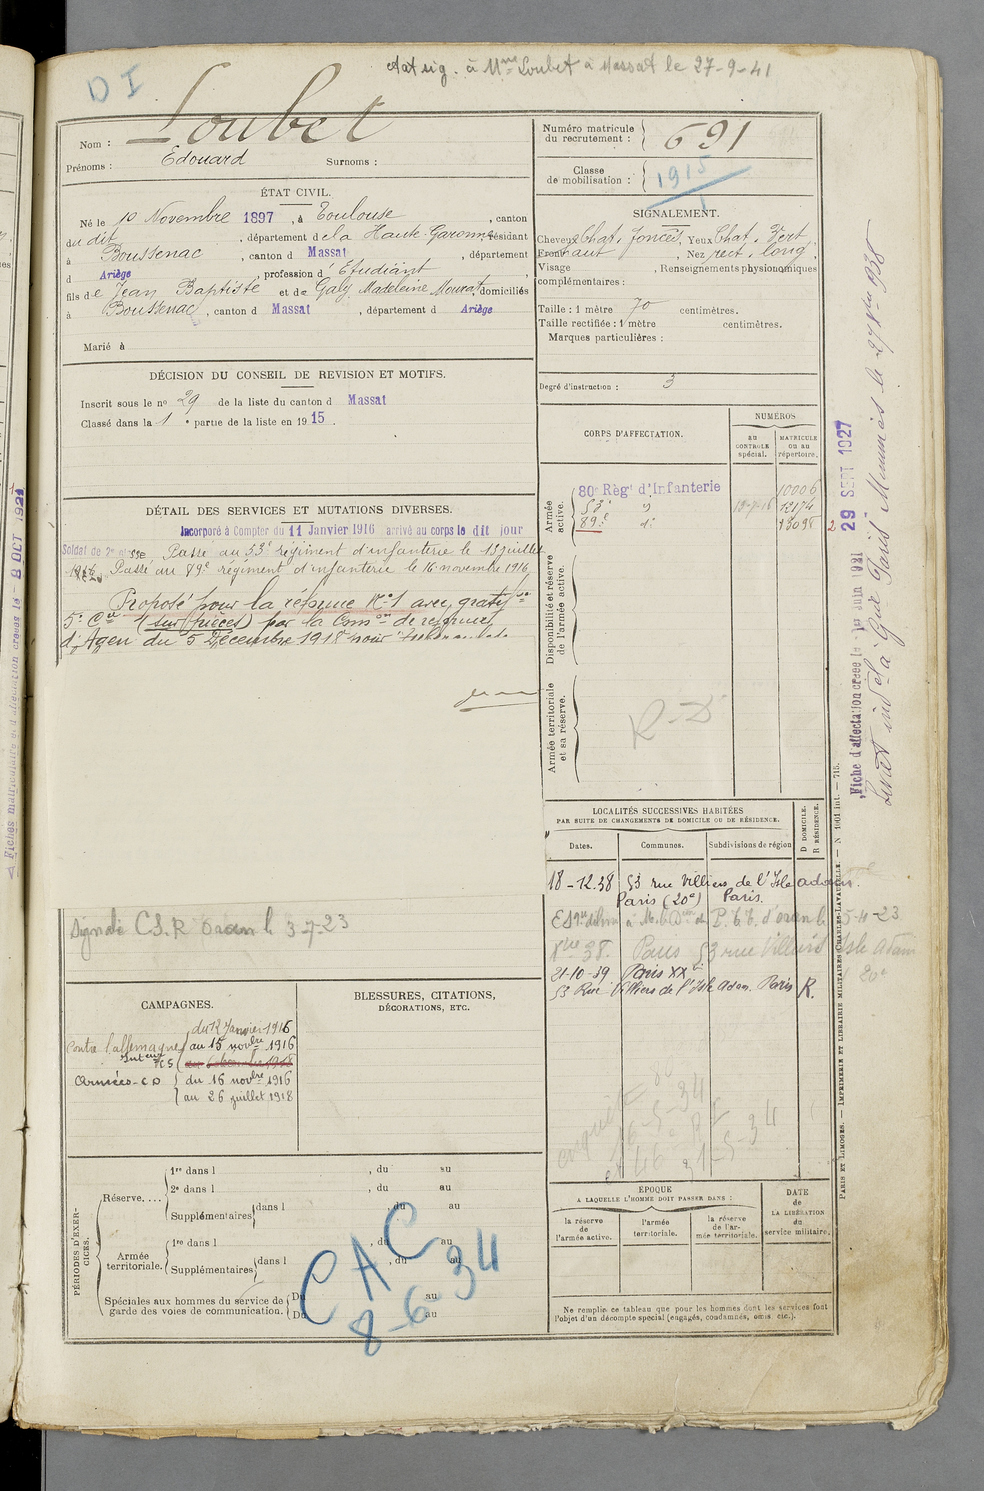 D I
état sig. à Mme Loubet à Massat le 27-9-41
Nom : Loubet
Prénoms : Edouard Surnoms :
Numéro matricule du recrutement : 691
Classe de mobilisation : 1915
ÉTAT CIVIL.
Né le 10 Novembre 1897, à Toulouse, canton
du dit, département de la Haute-Garonne, résidant
à Boussenac, canton d Massat, département
d Ariège, profession d'Étudiant
fils de Jean Baptiste et de Galy Madeleine Mourat, domiciliés
à Boussenac, canton d Massat, département d Ariège
Marié à
SIGNALEMENT.
Cheveux Chat. foncés. Yeux Chat. Vert
Front haut, Nez rect. long.
Visage, Renseignements physionomiques
complémentaires :
Taille : 1 mètre 70 centimètres.
Taille rectifiée : 1 mètre centimètres.
Marques particulières :
Degré d'instruction : 3
DÉCISION DU CONSEIL DE REVISION ET MOTIFS.
Inscrit sous le no 29 de la liste du canton d Massat
Classé dans la 1 e partie de la liste en 1915.
DÉTAIL DES SERVICES ET MUTATIONS DIVERSES.
Incorporé à Compter du 11 Janvier 1916 arrivé au corps le dit jour
Soldat de 2e classe Passé au 53e régiment d'infanterie le 15 juillet
1916. Passé au 89e régiment d'infanterie le 16 novembre 1916
Proposé pour la réforme No 1 avec gratif
5e Cie (sur pièces) par la Com on de réforme
d'Agen du 5 Décembre 1918 pour
CORPS D'AFFECTATION.
NUMÉROS
AU CONTROLE spécial.
MATRICULE OU AU répertoire.
Armée active.
80e Régt d'Infanterie 10006
53e d° 12174
89e d° 13098
Disponibilité et réserve de l'armée active.
Armée territoriale et sa réserve.
R-D
29 SEPT 1927
Fiche d'affectation créée le 1er Juin 1921
LOCALITÉS SUCCESSIVES HABITÉES
PAR SUITE DE CHANGEMENTS DE DOMICILE OU DE RÉSIDENCE.
D DOMICILE. R RÉSIDENCE.
Dates. Communes. Subdivisions de région
18-12.38 53 rue Villiers de l'Isle adam.
Paris (20e) Paris.
38. Paris 53 rue Villiers Isle Adam
20e
21-10-39 Paris XX
53 Rue Villiers de l'Isle Adam. Paris R.
Signalé C.S.R Oran le 3-7-23
CAMPAGNES.
Contre l'allemagne
du 12 Janvier 1916
au 15 novbre 1916
Armées - C D
du 16 novbre 1916
au 26 juillet 1918
BLESSURES, CITATIONS,
DÉCORATIONS, ETC.
enquête
16-5-34
31-5-34
PÉRIODES D'EXERCICES.
Réserve....
1re dans l , du au
2e dans l , du au
Supplémentaires dans l du au
Armée territoriale.
1re dans l , du au
Supplémentaires dans l , du au
Spéciales aux hommes du service de garde des voies de communication.
Du au
Du au
CAC
8-6-34
ÉPOQUE
A LAQUELLE L'HOMME DOIT PASSER DANS :
la réserve de l'armée active.
l'armée territoriale.
la réserve de l'armée territoriale.
DATE de LA LIBÉRATION du service militaire.
Ne remplir ce tableau que pour les hommes dont les services font
l'objet d'un décompte spécial (engagés, condamnés, omis etc.).
PARIS ET LIMOGES. — IMPRIMERIE ET LIBRAIRIE MILITAIRES CHARLES-LAVAUZELLE. —